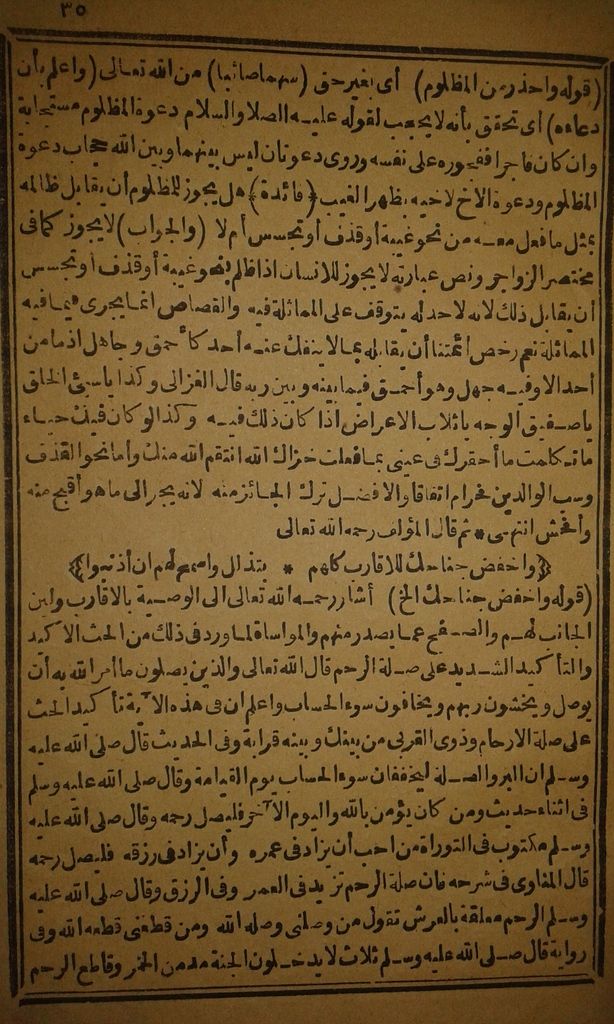 ٣٥
(قوله واحذر من المظلوم) أى بغير حق (سهما صائبا) من الله تعالى (واعلم بأن
دعاءه) أى تحقق بأنه لا يحجب لقوله عليه الصلا والسلام دعوة المظلوم مستجابة
وان كان فاجرا ففجوره على نفسه وروى دعوتان ليس بينهما وبين الله حجاب دعوة
المظلوم ودعوة الاخ لاخيه بظهر الغيب (فائدة) هل يجوز للمظلوم أن يقابل ظالمه
بمثل ما فعل معه من نحو غيبة أو قذف أو تجسس أم لا (والجواب) لا يجوز كما فى
مختصر الزواجر ونص عبارته لا يجوز للانسان اذا ظلم بنحو غيبة أو قذف أو تجسس
أن يقابل ذلك لانه لا حد له يتوقف على المماثلة فيه والقصاص انما يجرى فيما فيه
المماثلة نعم رخص أئمتنا أن يقابله بما لا ينفك عنه أحد كأحمق وجاهل اذ ما من
أحد الا وفيه جهل وهو أحمق فيما بينه وبين ربه قال الغزالى وكذا ياسيئ الخلق
ياصفيق الوجه ياثلاب الاعراض اذا كان ذلك فيه وكذا لو كان فيك حياء
ما تكلمت ما أحقرك فى عينى بما فعلت خزاك الله انتقم الله منك وأما نحو القذف
وسب الوالدين فحرام اتفاقا والافضل ترك الجائز منه لانه يجر الى ما هو أقبح منه
وأفحش انتهى * ثم قال المؤلف رحمه الله تعالى
﴿واخفض جناحك للاقارب كلهم * بتذلل واسمح لهم ان أذنبوا﴾
(قوله واخفض جناحك الخ) أشار رحمه الله تعالى الى الوصية بالاقارب ولين
الجانب لهم والصفح عما يصدر منهم والمواساة لما ورد فى ذلك من الحث الاكيد
والتأكيد الشديد على صلة الرحم قال الله تعالى والذين يصلون ما أمر الله به أن
يوصل ويخشون ربهم ويخافون سوء الحساب واعلم ان فى هذه الآية تأكيد الحث
على صلة الارحام وذوى القربى من بينك وبينه قرابة وفى الحديث قال صلى الله عليه
وسلم ان البر والصلة ليخففان سوء الحساب يوم القيامة وقال صلى الله عليه وسلم
فى اثناء حديث ومن كان يؤمن بالله واليوم الآخر فليصل رحمه وقال صلى الله عليه
وسلم مكتوب فى التوراة من احب أن يزاد فى عمره وأن يزاد فى رزقه فليصل رحمه
قال المناوى فى شرحه فان صلة الرحم تزيد فى العمر وفى الرزق وقال صلى الله عليه
وسلم الرحم معلقة بالعرش تقول من وصلنى وصله الله ومن قطعنى قطعه الله وفى
رواية قال صلى الله عليه وسلم ثلاث لا يدخلون الجنة مدمن الخمر وقاطع الرحم